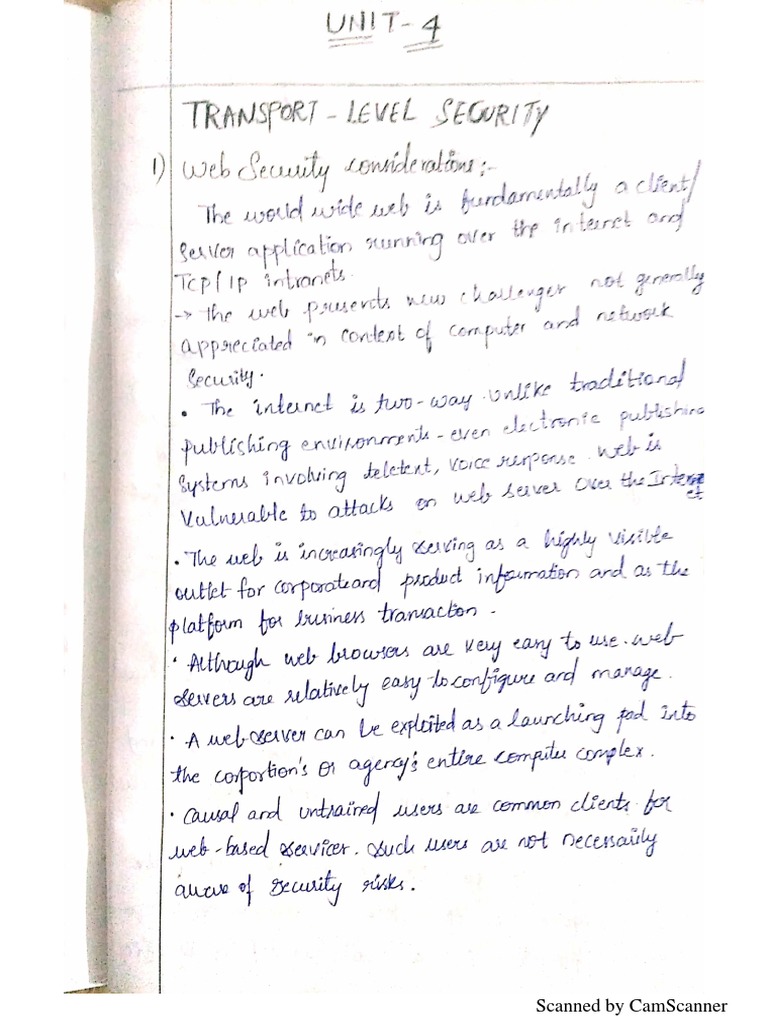 UNIT-4
TRANSPORT-LEVEL SECURITY
1) Web Security considerations:-
The world wide web is fundamentally a client/
server application running over the internet and
Tcp/Ip intranets.
→ The web presents new challenges not generally
appreciated in context of computer and network
security.
• The internet is two-way. unlike traditional
publishing environments - even electronic publishing
systems involving teletext, voice response. Web is
vulnerable to attacks on web server over the Internet
• The web is increasingly serving as a highly visible
outlet for corporate and product information and as the
platform for business transaction.
• Although web browsers are very easy to use. web
servers are relatively easy to configure and manage.
• A web server can be exploited as a launching pad into
the corportion's or agency's entire computer complex.
• Causal and untrained users are common clients for
web-based services. Such users are not necessarily
aware of security risks.
Scanned by CamScanner